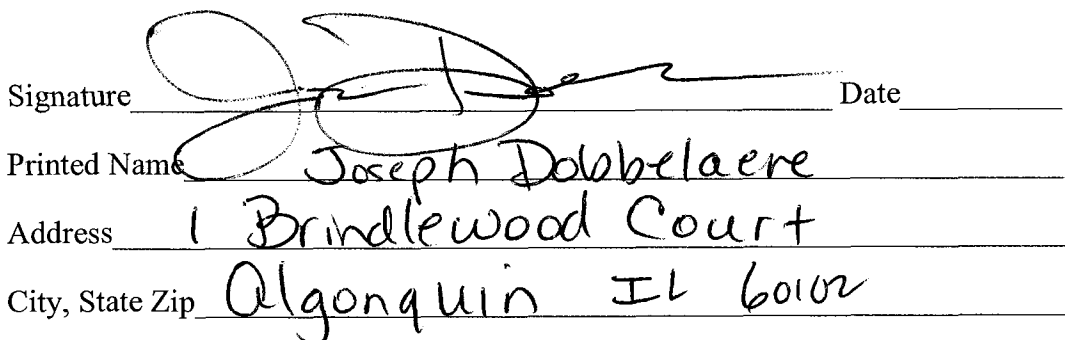 Signature Date
Printed Name Joseph Dobbelaere
Address 1 Brindlewood Court
City, State Zip Algonquin IL 60102